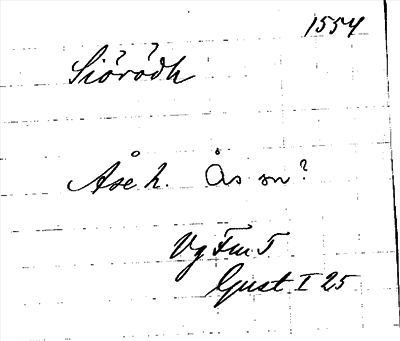 1554
Siörödh
Åse h. Ås sn?
Vg Fm 5
Gust I 25